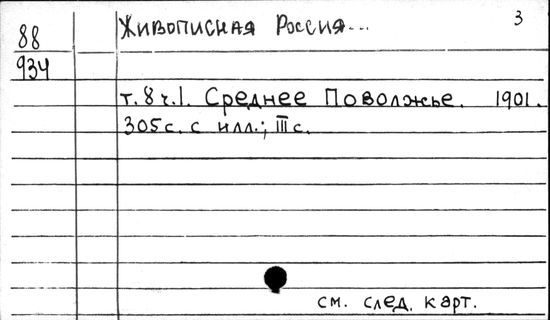 3
88 Живописная Россия...
934
т. 8 ч. 1. Среднее Поволжье. 1901.
305 с. с илл.; III с.
см. след. карт.